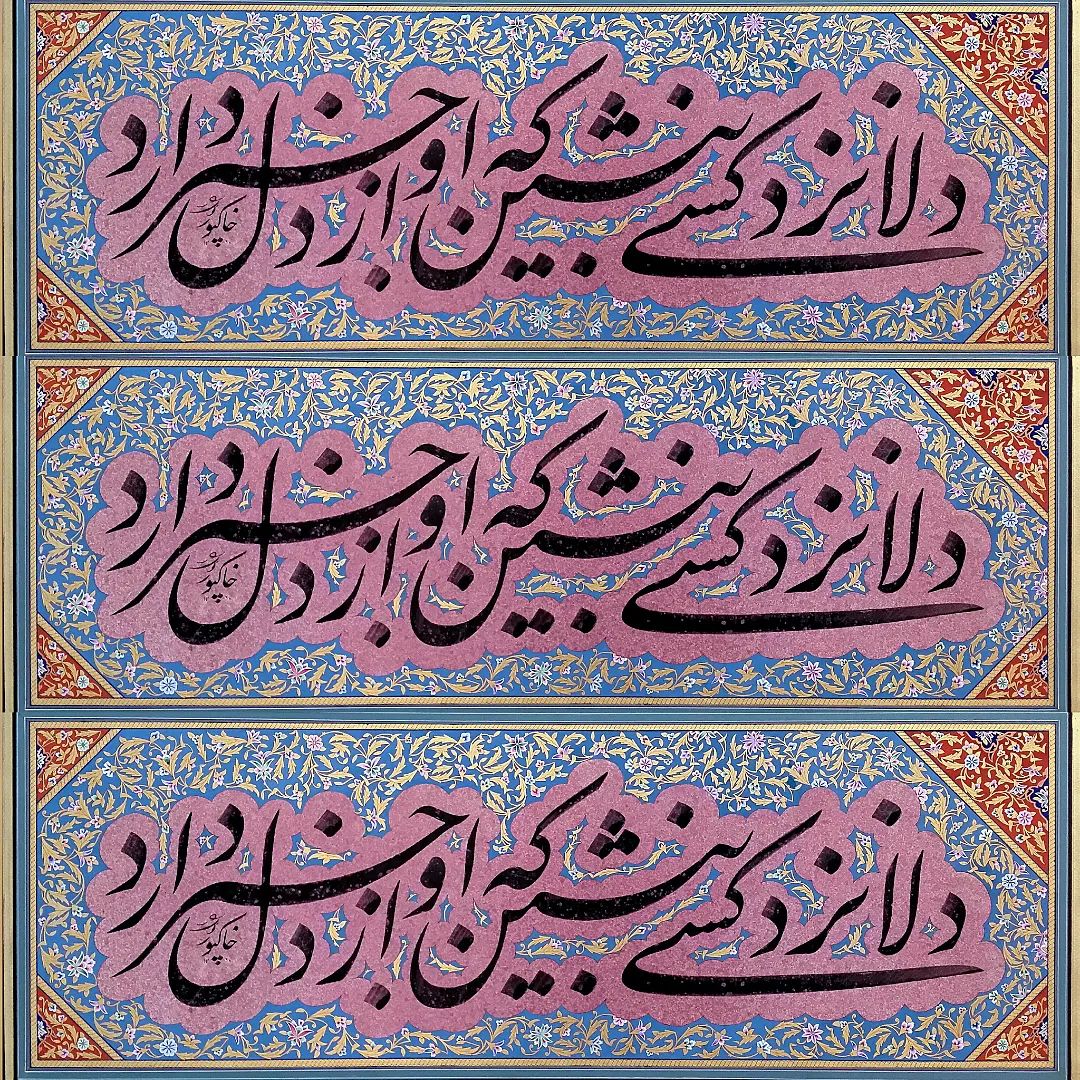 دلا نزد کسی بنشین که او از دل خبر دارد
خاکپور
دلا نزد کسی بنشین که او از دل خبر دارد
خاکپور
دلا نزد کسی بنشین که او از دل خبر دارد
خاکپور